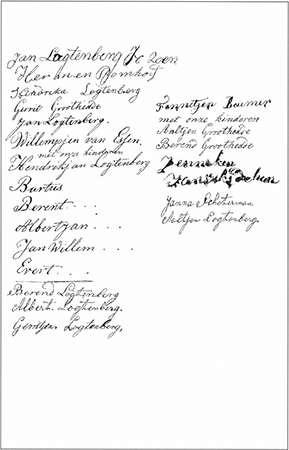 Jan Logtenberg Jc Zoen
Hermen Bomhof
Hendrika Logtenberg
Gerrit Groothedde
Jan Logtenberg.
Willempjen van Essen.
met onze kinderen
Hendrikjan Logtenberg
Bartus
Berent . . .
Albertjan . . .
Jan Willem . . .
Evert . . .
Berend Logtenberg
Albert. Logtenberg.
Gerritjen Logtenberg.
Fennitjen Beumer
met onze kinderen
Aaltjen Groothedde
Berend Groothedde
Janna Schoterman
Aaltjen Logtenberg.